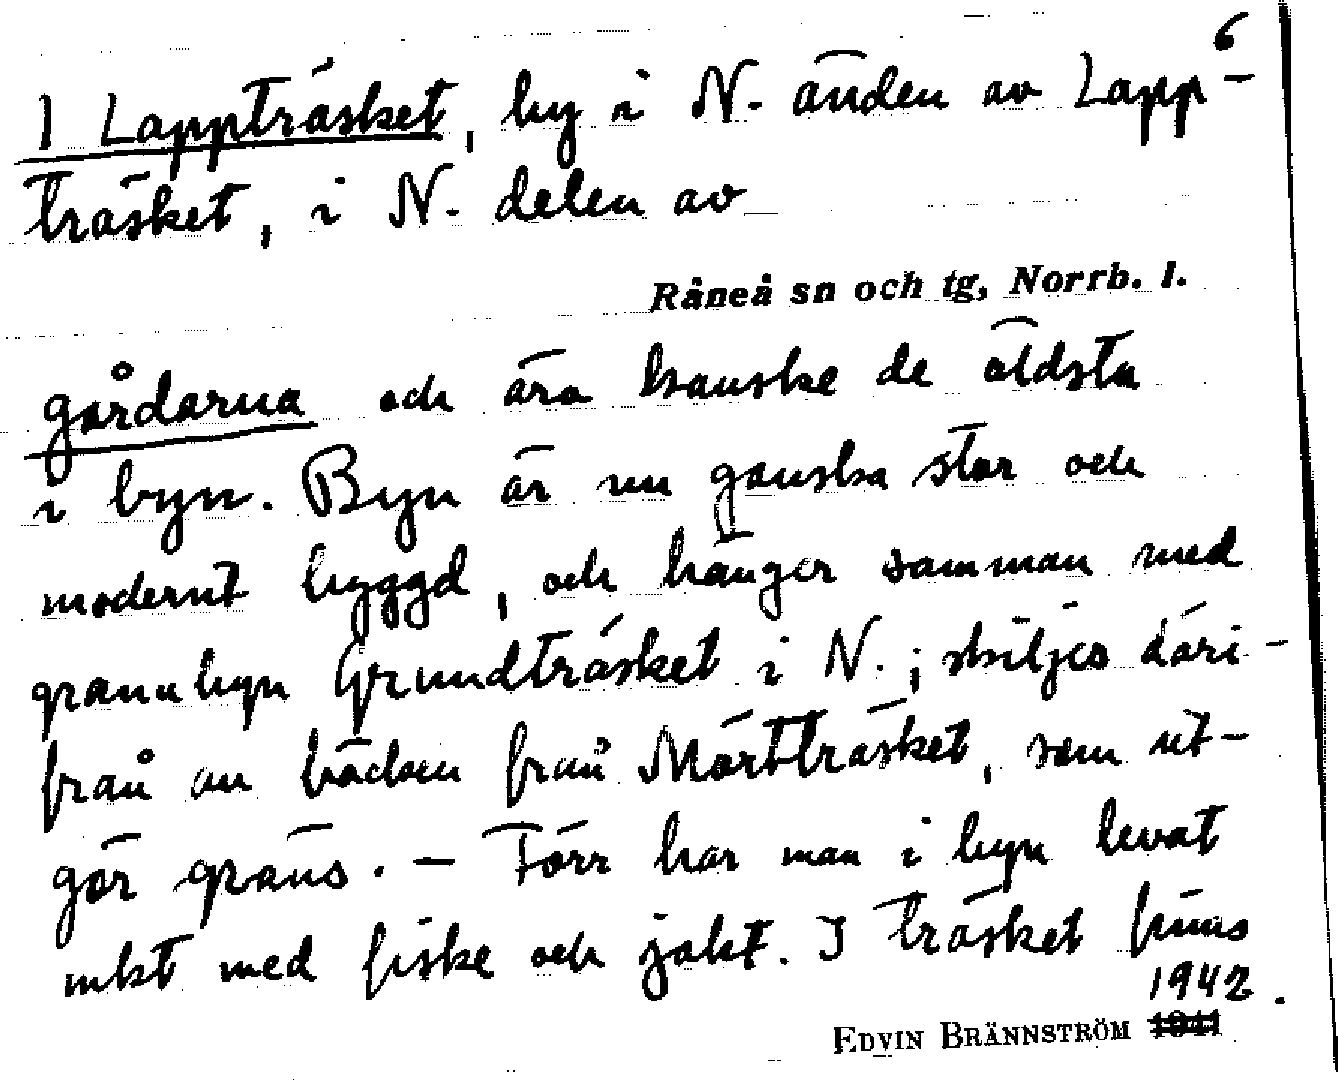 6
1 Lappträsket, by i N. änden av Lapp-
träsket, i N. delen av
Råneå sn och tg, Norrb. l.
gårdarna och ära kanske de äldsta
i byn. Byn är nu ganska stor och
modernt byggd, och hänger samman med
grannbyn Grundträsket i N.; skiljes däri-
från av bäcken från Mörtträsket, som ut-
gör gräns. – Förr har man i byn levat
mkt med fiske och jakt. I träsket finns
1942.
EDVIN BRÄNNSTRÖM 1941